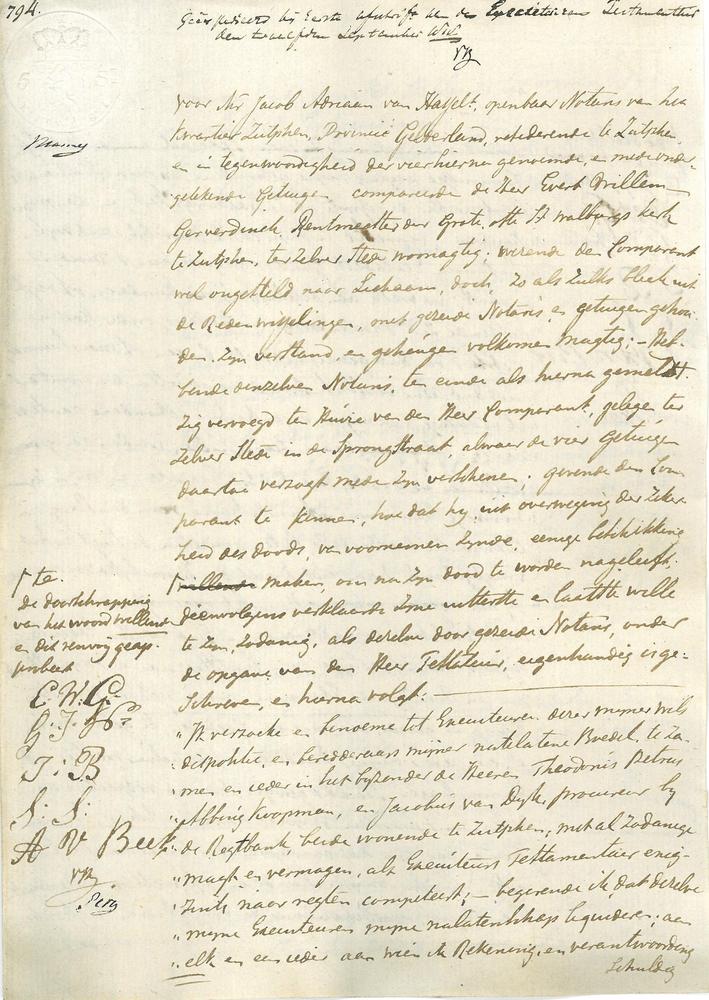 794.
Geëxpedieerd bij Eerste afschrift aan de Executeuren Testamentair
den twaalfden September
Voor Mr. Jacob Adriaan van Hasselt, openbaar Notaris van het
Kwartier Zutphen, Provincie Gelderland, residerende te Zutphen
en in tegenwoordigheid der vier hierna genoemde, en mede onder-
getekende Getuigen compareerde de Heer Evert Willem
Gerverdinck, Rentmeester der Grote, ofte St. Walburgs kerk
te Zutphen, ter zelver Stede woonagtig; wezende den Comparant
wel ongesteld naar Lichaam, doch, zo als zulks bleek uit
de Redenwisselingen, met gezeide Notaris en getuigen gehou-
den, zijn verstand, en geheugen volkomen magtig; – Heb-
bende denzelven Notaris, te einde als hierna gemeldt
zig vervoegd ten Huize van den Heer Comparant, gelegen ter
zelver Stede in de Sprongstraat, alwaar de vier Getuigen
daartoe verzogt mede zijn verschenen; gevende den Com-
parant te kennen, hoe dat hij, uit overweging der Zeker-
heid des doods, van voornemen zijnde, eenige beschikking
willende maken, om na zijn dood te worden nageleeft.
dienvolgens verklaarde zijne uitterste en laatste wille
te zijn, zodanig, als dezelve door gezeide Notaris, onder
de opgave van den Heer Testateur, eigenhandig is ge-
schreven, en hierna volgt:
„Ik verzoeke en benoeme tot Executeuren dezer mijner Wils
„dispositie, en beredderaars mijner natelatene Boedel, te za-
„men en ieder in het bijzonder de Heeren Theodorus Petrus
„Abbing Koopman, en Jacobus van Dijk, procureur bij
„de Regtbank, beide wonende te Zutphen, met al zodanige
„magt en vermogen, als Executeurs Testamentair enig-
„zints naar regten competeert; – begerende ik, dat dezelve
„mijne Executeuren mijne nalatenschap liquideren; aan
„elk en een ieder aan wien ik Rekening, en verantwoording
schuldig
te
de doorschrapping
van het woord willende
en dit renvoij geap-
probeert
E. W. G.
G. J.
J: B
S: S:
A V Beek